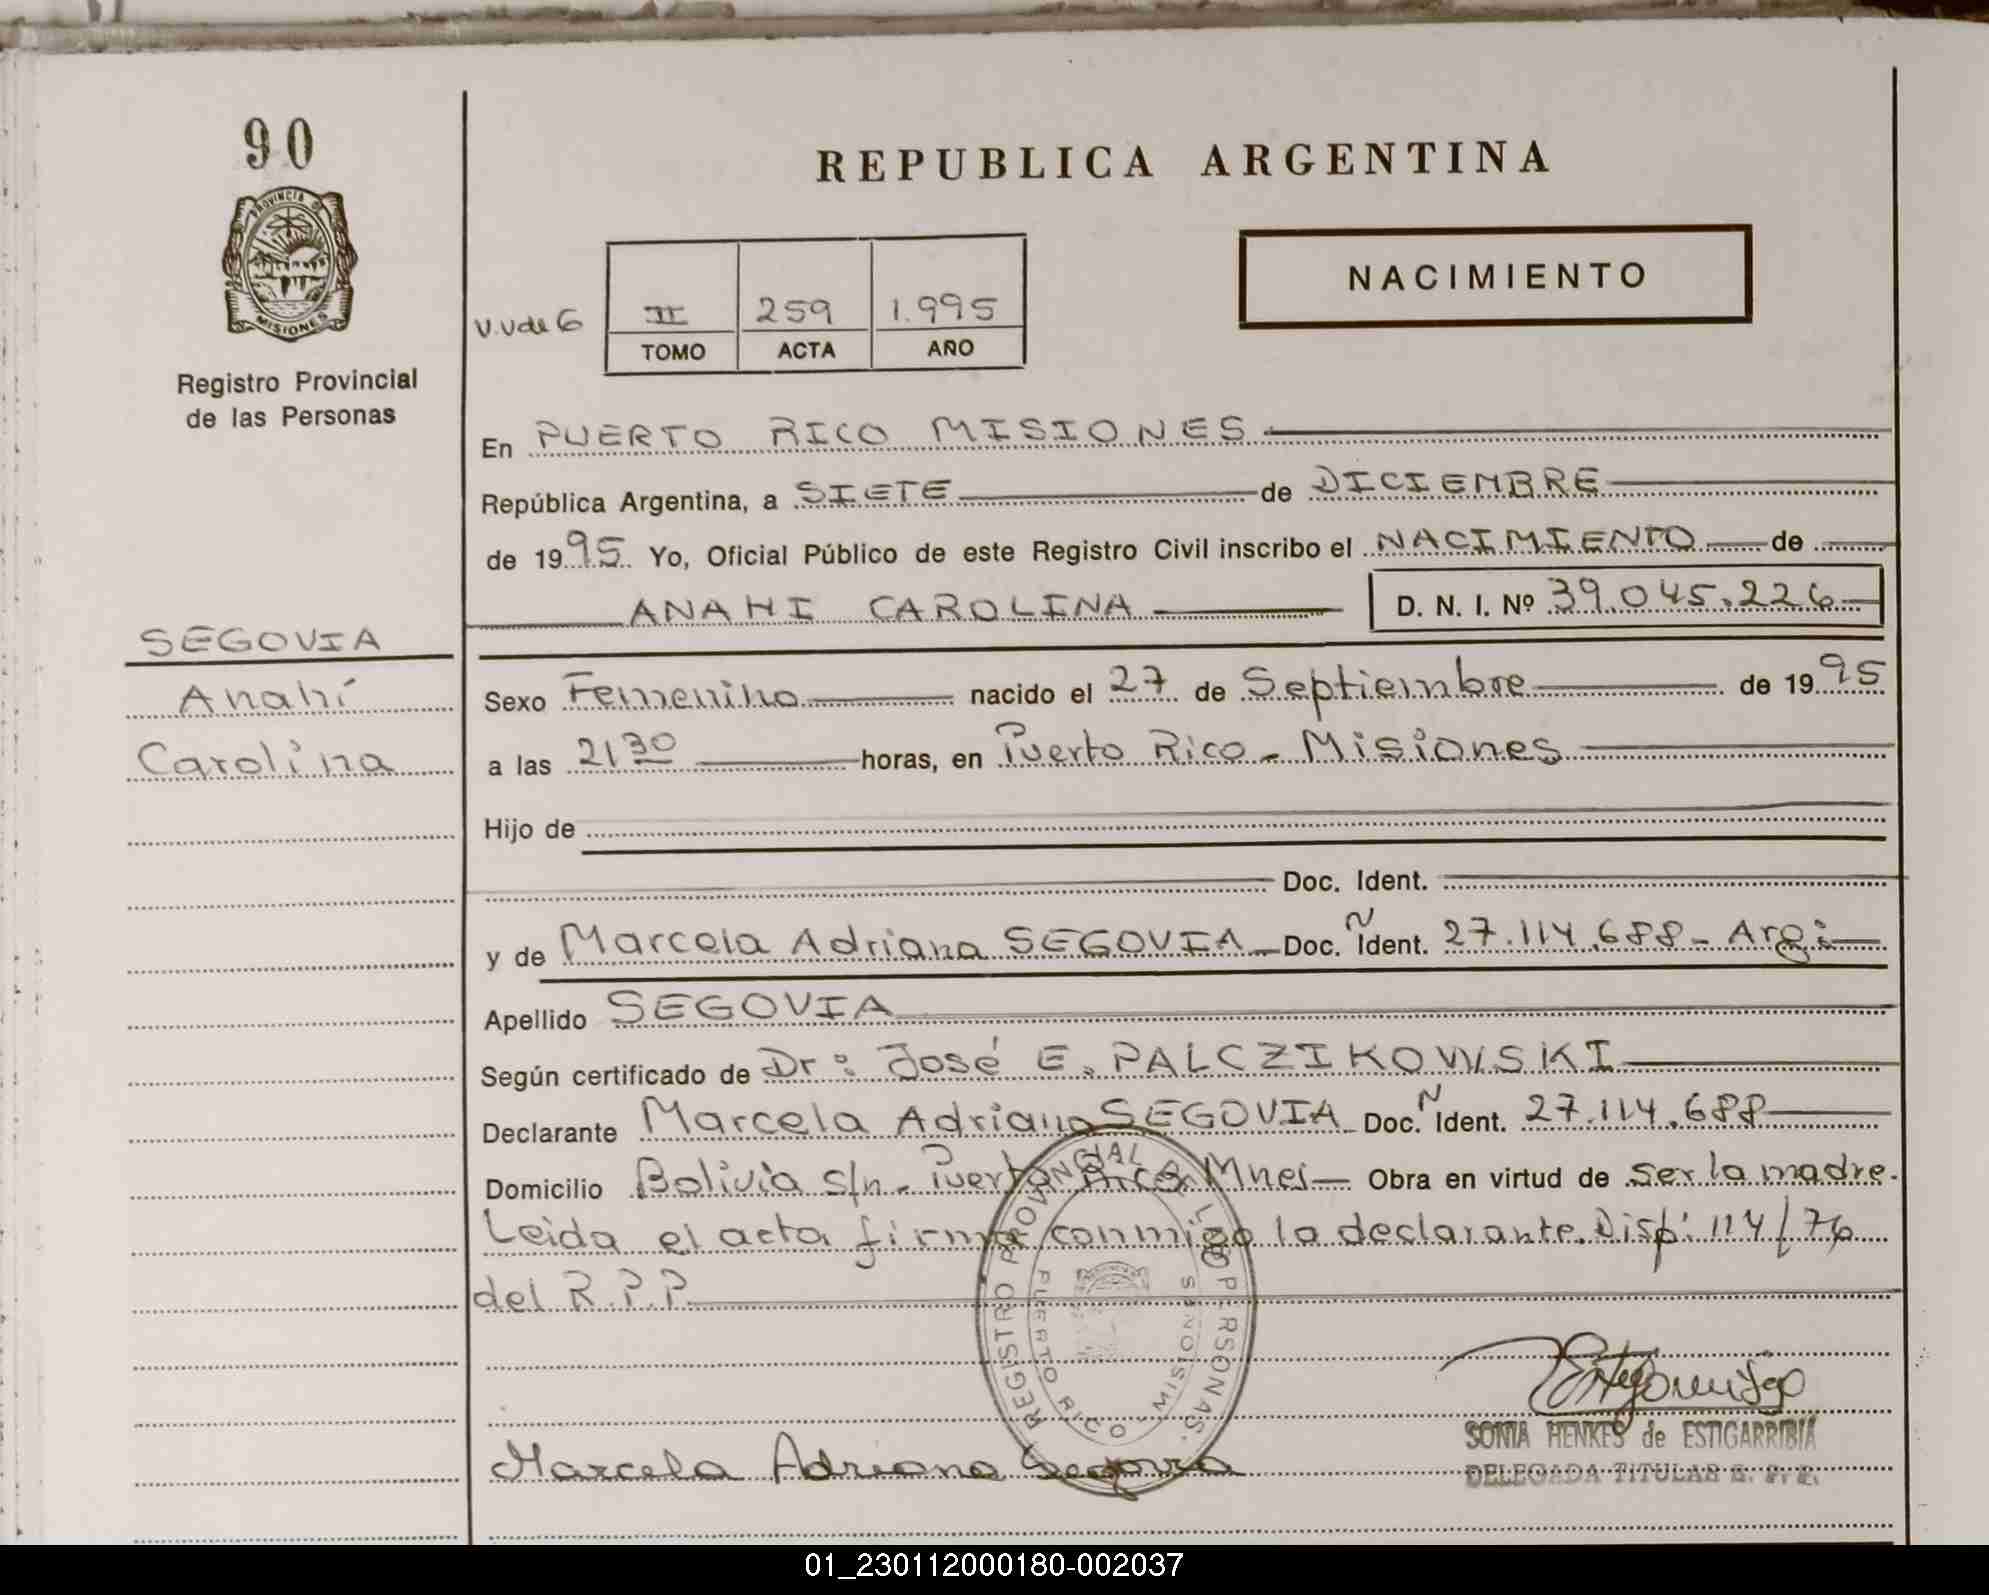 90
PROVINCIA DE
MISIONES
Registro Provincial
de las Personas
REPUBLICA ARGENTINA
NACIMIENTO
II 259 1.995
TOMO ACTA AÑO
En PUERTO RICO MISIONES
República Argentina, a SIETE de DICIEMBRE
de 1995. Yo, Oficial Público de este Registro Civil inscribo el NACIMIENTO de
ANAHI CAROLINA D. N. I. Nº 39.045.226
SEGOVIA
Anahí
Carolina
Sexo Femenino nacido el 27 de Septiembre de 1995
a las 21 30 horas, en Puerto Rico - Misiones
Hijo de
Doc. Ident.
y de Marcela Adriana SEGOVIA Doc. N Ident. 27.114.688 - Arg:
Apellido SEGOVIA
Según certificado de Dr: José E. PALCZIKOWSKI
Declarante Marcela Adriana SEGOVIA Doc. N Ident. 27.114.688
Domicilio Bolivia s/n - Puerto Rico Mnes Obra en virtud de ser la madre.
Leida el acta firma conmigo la declarante. Disp: 114/76
del R.P.P.
REGISTRO PROVINCIAL DE LAS PERSONAS
PUERTO RICO MISIONES
Marcela Adriana Segovia
SONIA HENKES de ESTIGARRIBIA
DELEGADA TITULAR
01_230112000180-002037